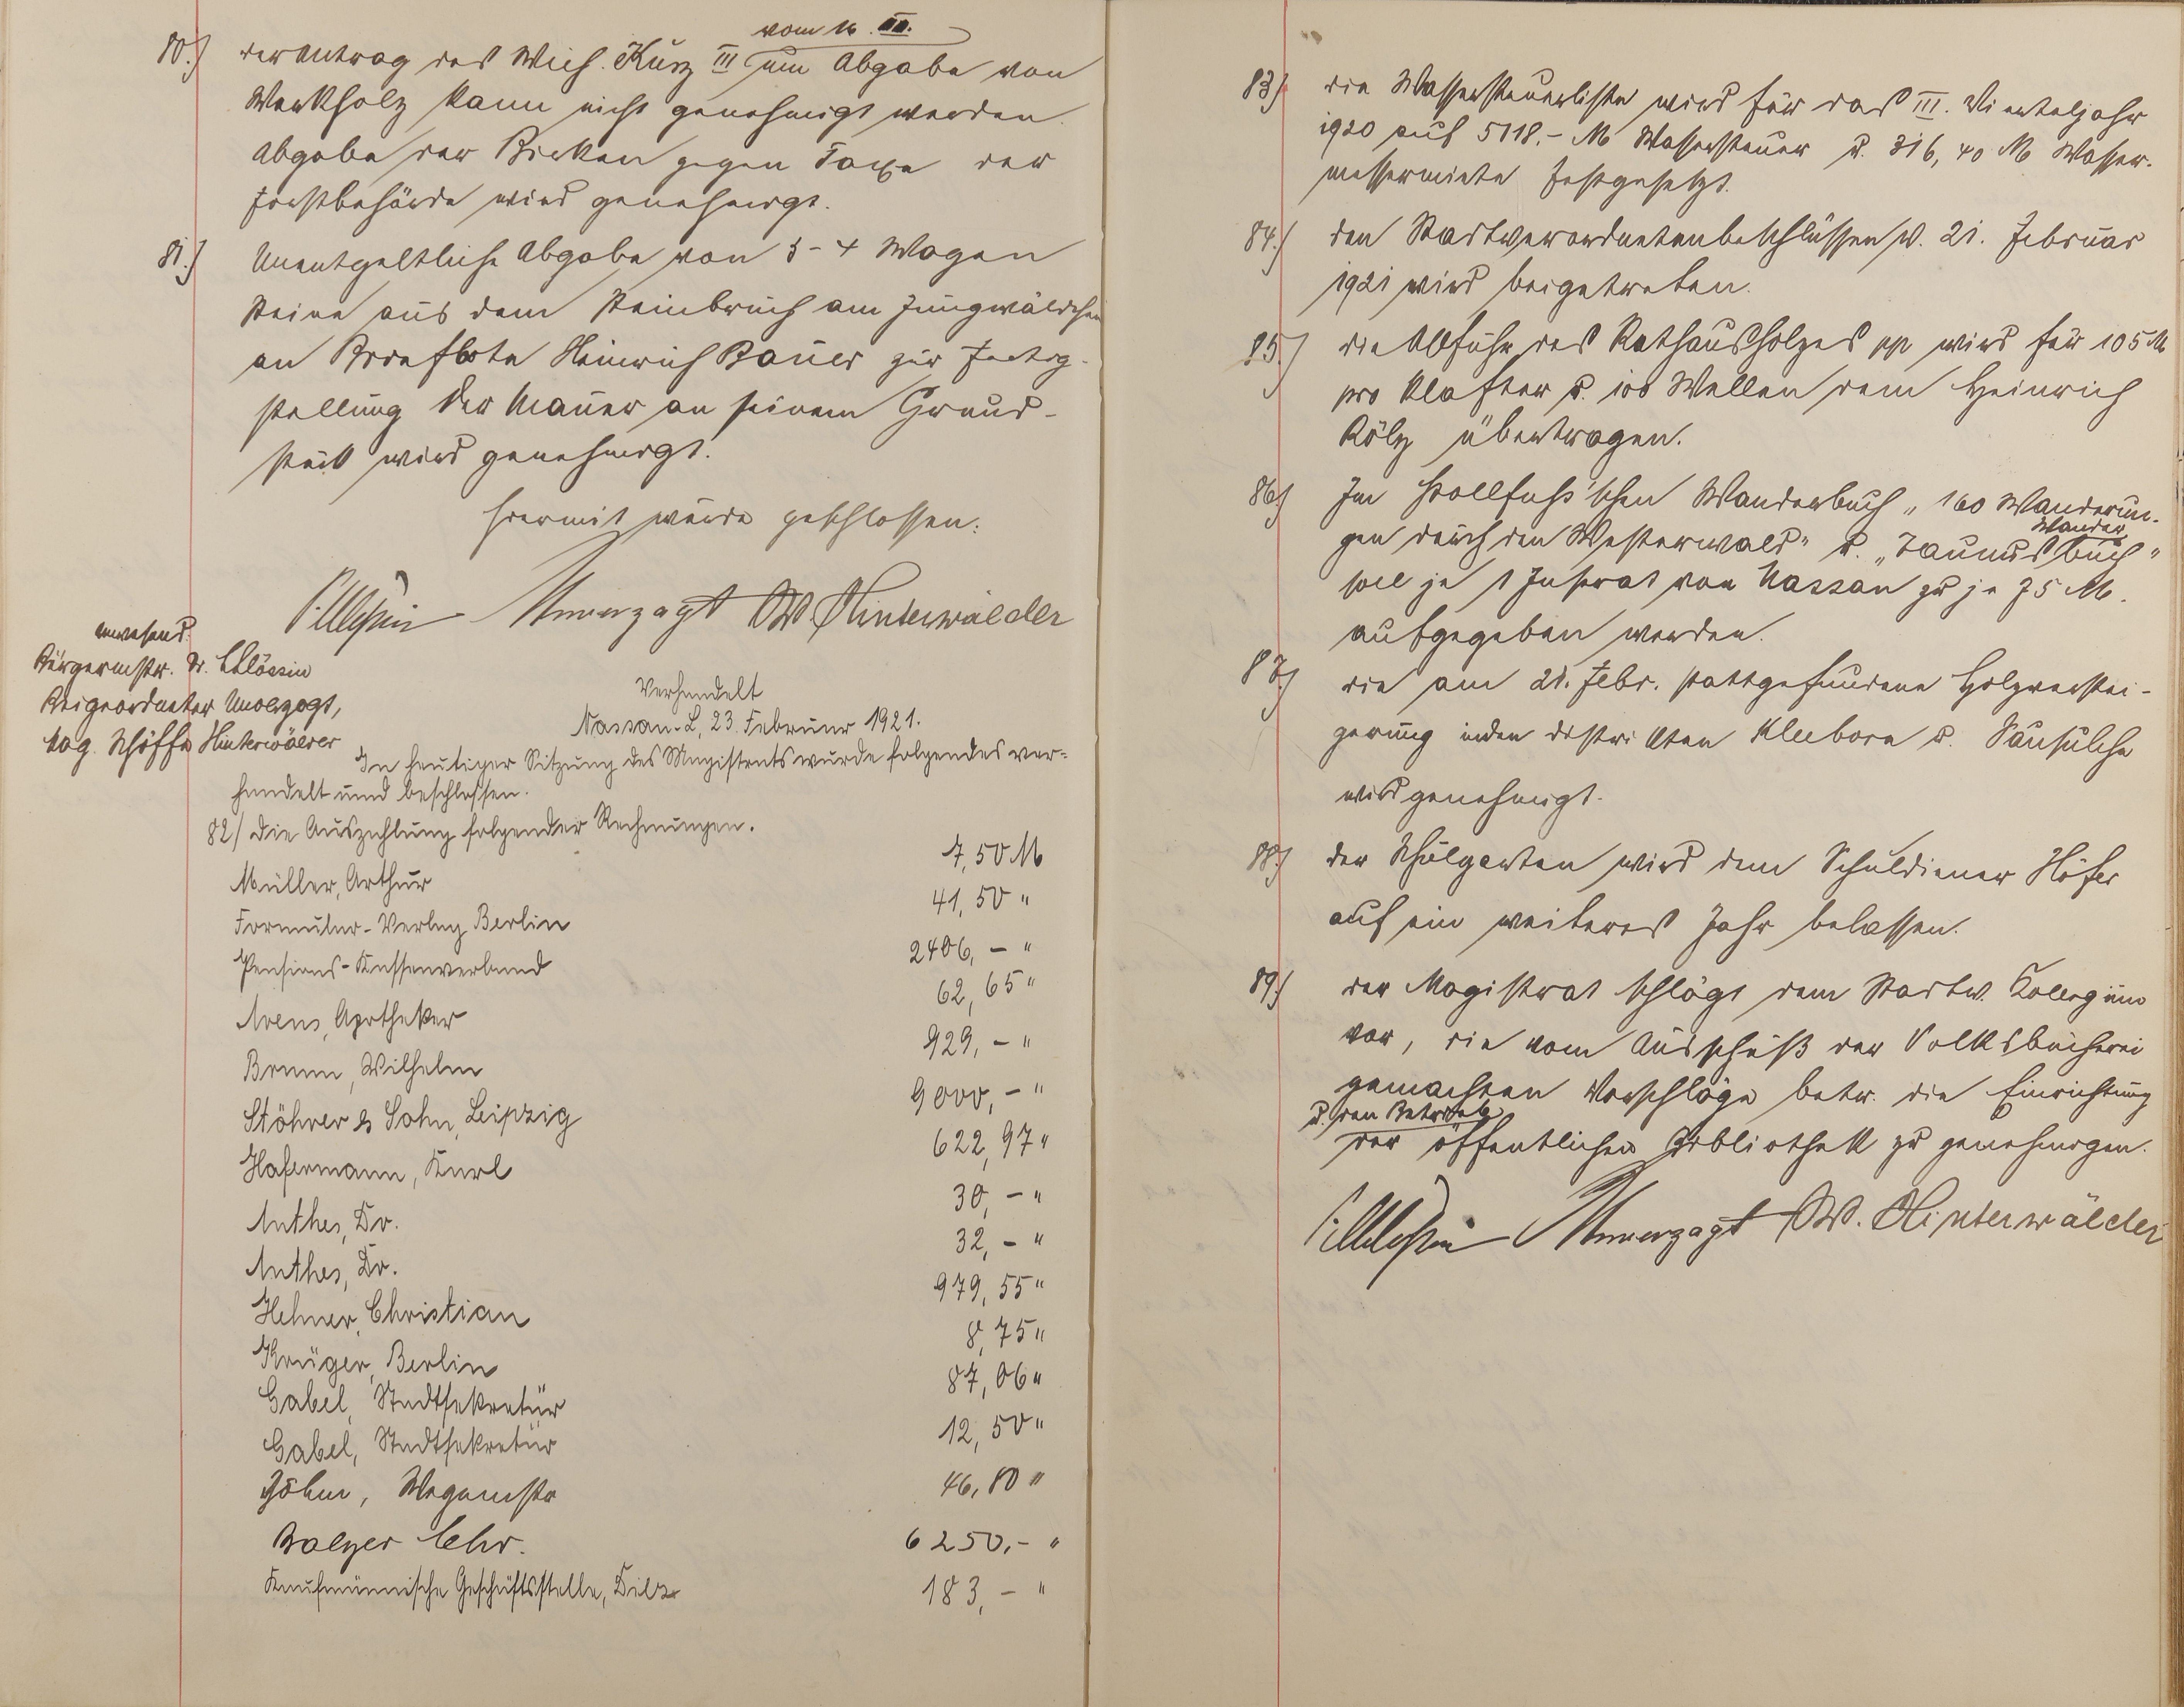 vom 16. III.
80.) der Antrag des Wilh. Kurz III um Abgabe von
Werkholz kann nicht genehmigt werden.
Abgabe der Birken gegen Taxe der
Forstbehörde wird genehmigt.
81.) Unentgeltliche Abgabe von 3-4 Wagen
Steine aus dem Steinbruch am Jungwäldchen
an Briefbote Heinrich Bauer zur Fertig-
stellung der Mauer an seinem Grund-
stück wird genehmigt.
Hiermit wurde geschlossen:
Unverzagt W. Hinterwälder
anwesend:
Bürgermstr. Dr.
Beigeordneter Unverzagt,
Mag. Schöffe Hinterwälder
Verhandelt
Nassau-L, 23. Februar 1921.
In heutiger Sitzung des Magistrats wurde folgendes ver-
handelt und beschlossen.
82/ Die Auszahlung folgender Rechnungen.
Müller, Arthur 7,50 M
Formular-Verlag Berlin 41,50 "
Pensions-Kassenverband 2406,- "
Arens, Apotheker 62,65 "
Bruun, Wilhelm 929,- "
Stöhrer & Sohn, Leipzig 9000,- "
Hafermann, Karl 622,97 "
Anthes, Dr. 30,- "
Anthes, Dr. 32,- "
Hehner, Christian 979,55 "
Krüger, Berlin 8,75 "
Gabel, Stadtsekretär 87,06 "
Gabel, Stadtsekretär 12,50 "
Böhm, Wegemstr 46,80 "
Balzer Chr. 6250,- "
Kaufmännische Geschäftsstelle, Diez 183,- "
83) die Wassersteuerliste wird für das III. Vierteljahr
1920 auf 5118.- M Wassersteuer u. 316,40 M Wasser-
messermiete festgesetzt.
84.) den Stadtverordnetenbeschlüssen v. 21. Februar
1921 wird beigetreten.
85.) die Abfuhr des Rathausholzes pp wird für 105 M
pro Klafter u. 100 Wellen dem Heinrich
Kölz übertragen.
86) Im Stollfuß'schen Wanderbuch „160 Wanderun-
gen durch den Westerwald" u. „Taunus Wander buch"
soll je 1 Inserat von Nassau zu je 75 M.
aufgegeben werden.
87.) die am 21. Febr. stattgefundene Holzverstei-
gerung in den Distrikten Kleeborn u. Sausulche
wird genehmigt.
88.) der Schulgarten wird dem Schuldiener Höfer
auf ein weiteres Jahr belassen.
89.) der Magistrat schlägt dem Stadtv. Kollegium
vor, die vom Ausschuß der Volksbücherei
gemachten Vorschläge betr. die Einrichtung
u. den Betrieb
der öffentlichen Bibliothek zu genehmigen.
Unverzagt W. Hinterwälder